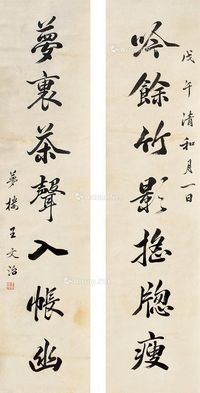 戊午清和月一日
吟餘竹影摇牕瘦
夢裏茶聲入帳幽
夢樓王文治